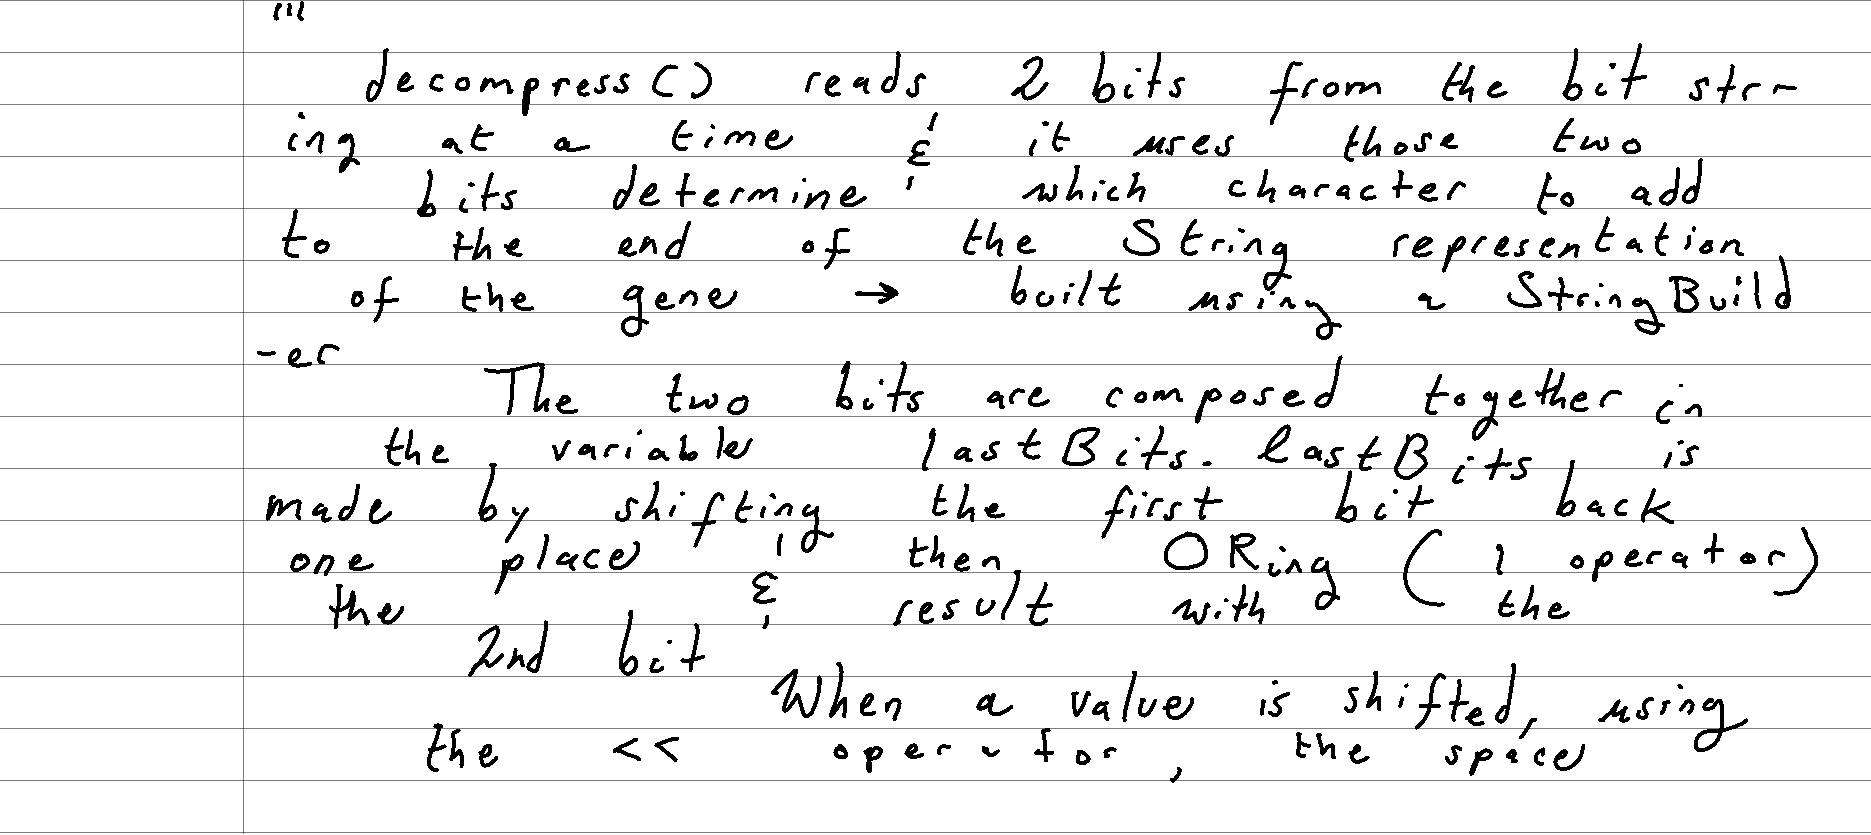 decompress() reads 2 bits from the bit str-
ing at a time & it uses those two
bits determine which character to add
to the end of the String representation
of the gene → built using a StringBuild
-er
The two bits are composed together in
the variable lastBits. lastBits is
made by shifting the first bit back
one place & then ORing (| operator)
the result with the
2nd bit
When a value is shifted, using
the << operator, the space